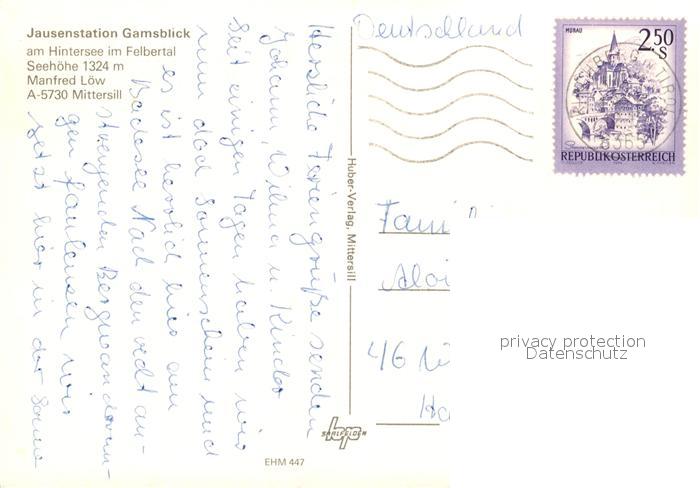 Jausenstation Gamsblick
am Hintersee im Felbertal
Seehöhe 1324 m
Manfred Löw
A-5730 Mittersill
Herzliche Feriengrüße senden
Johann, Wilma u. Kinder
Seit einigen Tagen haben wir
nun doch Sonnenschein und
es ist herrlich hier am
Badesee Nach den recht an-
strengenden Bergwanderun-
gen faulensen wir
jetzt hier in der Sonne
Huber-Verlag, Mittersill
SAALFELDEN
EHM 447
Deutschland
MURAU
2.50
S
REPUBLIK ÖSTERREICH
6365
Fami
Aloi
46
Ha
privacy protection
Datenschutz